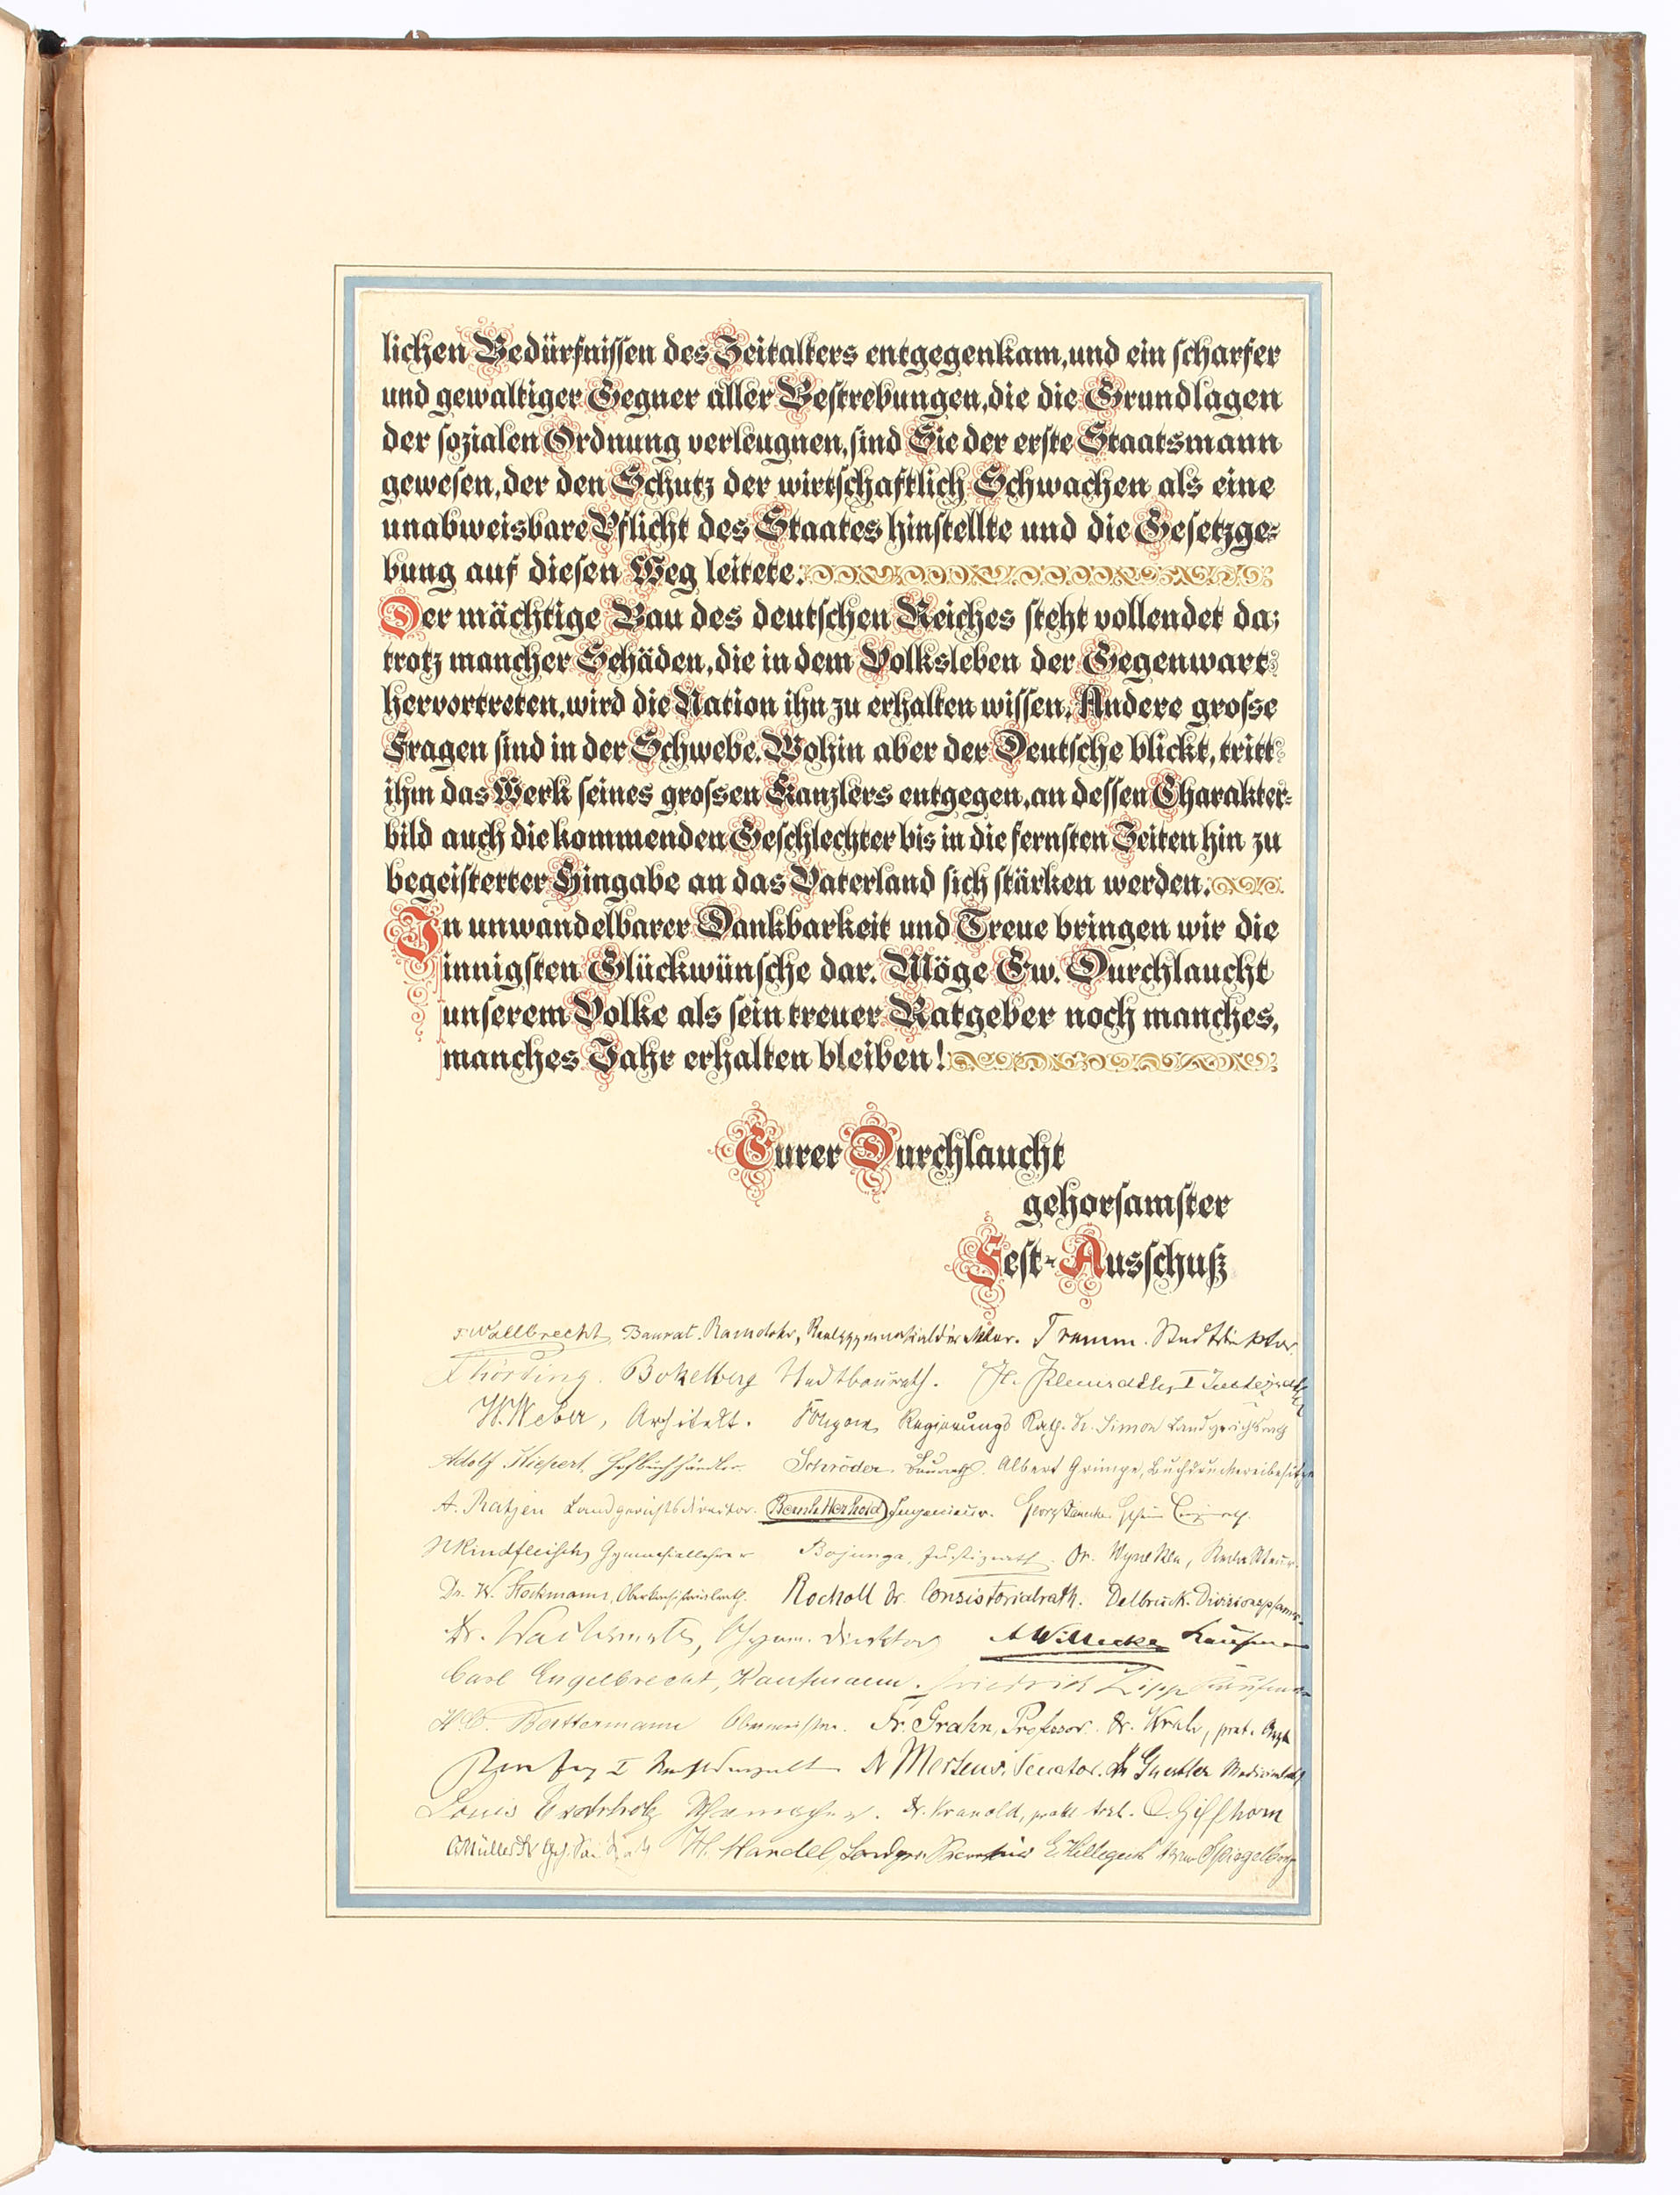 lichen Bedürfnissen des Zeitalters entgegenkam, und ein scharfer
und gewaltiger Gegner aller Bestrebungen, die die Grundlagen
der sozialen Ordnung verleugnen, sind Sie der erste Staatsmann
gewesen, der den Schutz der wirtschaftlich Schwachen als eine
unabweisbare Pflicht des Staates hinstellte und die Gesetzge-
bung auf diesen Weg leitete.
Der mächtige Bau des deutschen Reiches steht vollendet da;
trotz mancher Schäden, die in dem Volksleben der Gegenwart
hervortreten, wird die Nation ihn zu erhalten wissen. Andere grosse
Fragen sind in der Schwebe. Wohin aber der Deutsche blickt, tritt
ihm das Werk seines grossen Kanzlers entgegen, an dessen Charakter-
bild auch die kommenden Geschlechter bis in die fernsten Zeiten hin zu
begeisterter Hingabe an das Vaterland sich stärken werden.
In unwandelbarer Dankbarkeit und Treue bringen wir die
innigsten Glückwünsche dar. Möge Ew. Durchlaucht
unserem Volke als sein treuer Ratgeber noch manches,
manches Jahr erhalten bleiben!
Eurer Durchlaucht
gehorsamster
Fest-Ausschuß
Wallbrecht, Baurat. Ramdohr, Realgymnasialdirektor. Tramm. Stadtdirektor.
Bokelberg Stadtbaurath.
W. Weber, Architekt. Regierungs Rath. Dr. Simon Landgerichtsrath
Adolf Kiepert, Hofbuchhändler. Schröder. Baurath. Albert Grimpe, Buchdruckereibesitzer
A. Ratjen Landgerichtsdirector. Ingenieur. Georg
Rindfleisch, Gymnasiallehrer Bojunga, Justizrath. Dr.
Dr. K. Stockmann, Rocholl Dr. Consistorialrath. Delbrück. Divisionspfarrer.
Dr. Wachsmuth, Gymn. direktor A Willecke Kaufmann
Carl Engelbrecht, Kaufmann. Friedrich
Obermeister. Fr. Grahn, Professor. Dr. prakt. Arzt
I Dr Mertens. Senator. Dr Guertler
Louis Dr. Kranold, prakt. Arzt. Giffhorn
Müller Dr H. Handel, Spiegelberg